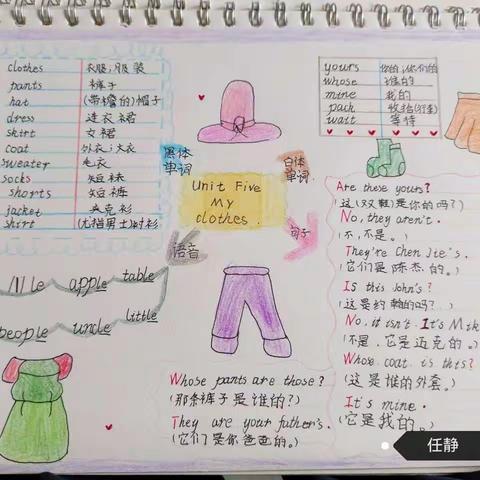 clothes 衣服;服装
pants 裤子
hat (带檐的)帽子
dress 连衣裙
skirt 女裙
coat 外衣;大衣
sweater 毛衣
socks 短袜
shorts 短裤
jacket 夹克衫
shirt (尤指男士)衬衫
yours 你的;你们的
whose 谁的
mine 我的
pack 收拾(行李)
wait 等待
黑体
单词
白体
单词
Unit Five
My
clothes.
语音
句子
apple table
people uncle little
Are these yours?
(这(双鞋)是你的吗?)
No, they aren't.
(不,不是。)
They're Chen Jie's.
(它们是陈杰的。)
Is this John's?
(这是约翰的吗?)
No, it isn't. It's Mik
(不是,它是迈克的。)
Whose coat is this?
(这是谁的外套。)
It's mine.
(它是我的。)
Whose pants are those?
(那条裤子是谁的?)
They are your father's.
(它们是你爸爸的。)
任静